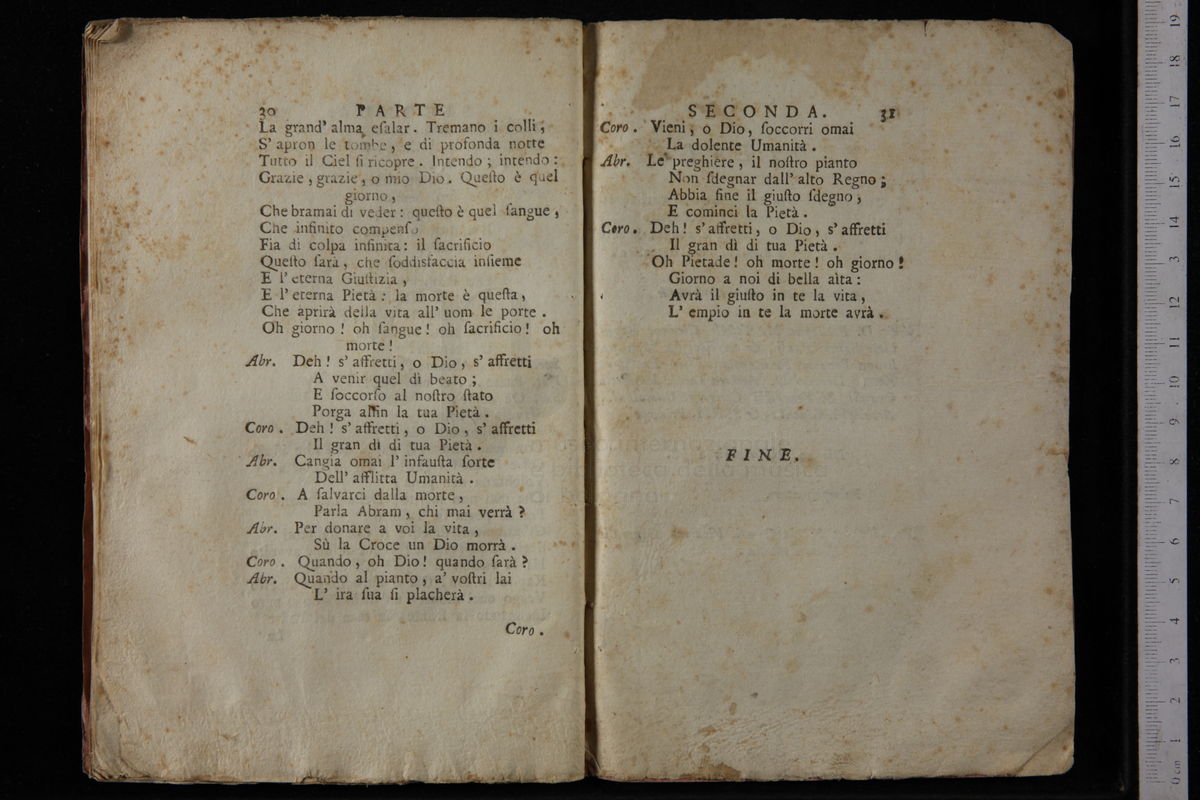 30 PARTE
La grand' alma eſalar. Tremano i colli,
S' apron le tombe, e di profonda notte
Tutto il Ciel ſi ricopre. Intendo; intendo:
Grazie, grazie, o mio Dio. Queſto è quel
giorno,
Che bramai di veder: queſto è quel ſangue,
Che infinito compenſo
Fia di colpa infinita: il ſacrificio
Queſto ſarà, che ſoddisfaccia inſieme
E l' eterna Giuſtizia,
E l' eterna Pietà: la morte è queſta,
Che aprirà della vita all' uom le porte.
Oh giorno! oh ſangue! oh ſacrificio! oh
morte!
Abr. Deh! s' affretti, o Dio, s' affretti
A venir quel dì beato;
E ſoccorſo al noſtro ſtato
Porga alfin la tua Pietà.
Coro. Deh! s' affretti, o Dio, s' affretti
Il gran dì di tua Pietà.
Abr. Cangia omai l' infauſta ſorte
Dell' afflitta Umanità.
Coro. A ſalvarci dalla morte,
Parla Abram, chi mai verrà?
Abr. Per donare a voi la vita,
Sù la Croce un Dio morrà.
Coro. Quando, oh Dio! quando ſarà?
Abr. Quando al pianto, a' voſtri lai
L' ira ſua ſi placherà.
Coro.
SECONDA. 31
Coro. Vieni, o Dio, ſoccorri omai
La dolente Umanità.
Abr. Le preghiere, il noſtro pianto
Non ſdegnar dall' alto Regno;
Abbia fine il giuſto ſdegno,
E cominci la Pietà.
Coro. Deh! s' affretti, o Dio, s' affretti
Il gran dì di tua Pietà.
Oh Pietade! oh morte! oh giorno!
Giorno a noi di bella aita:
Avrà il giuſto in te la vita,
L' empio in te la morte avrà.
FINE.
museo internazionale
0 cm 1 2 3 4 5 6 7 8 9 10 11 12 13 14 15 16 17 18 19